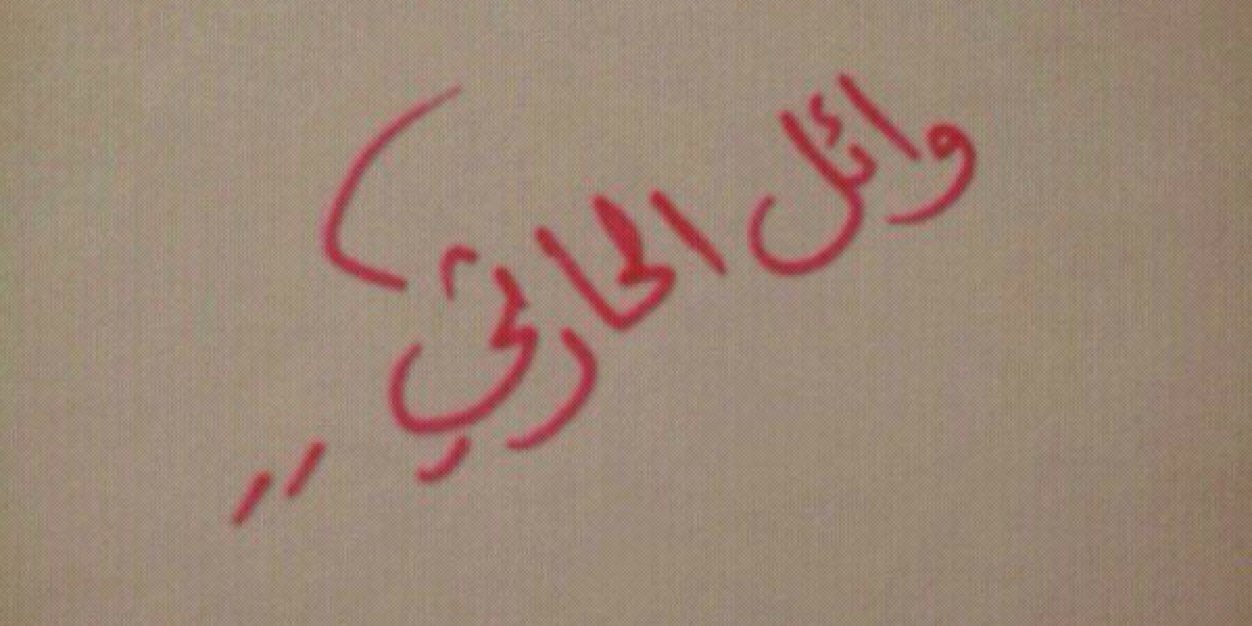 وائل الحارثي